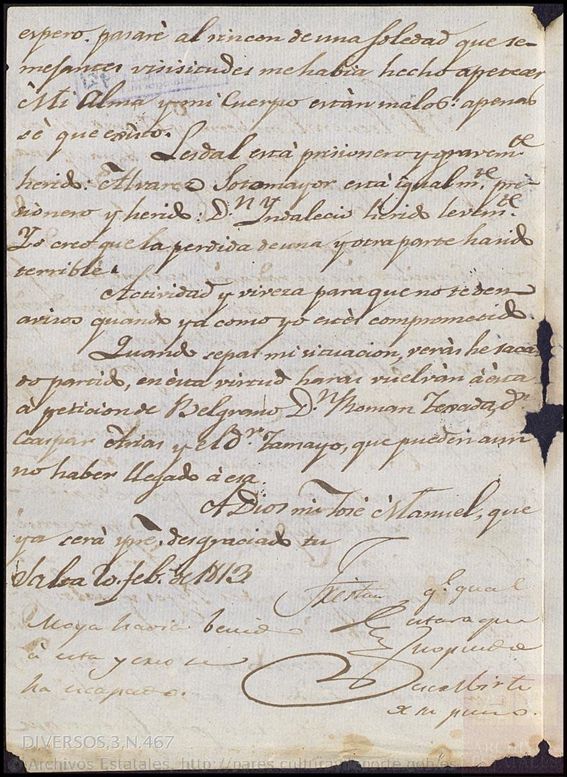 espero. pasarè al rincon de una soledad que se-
mejantes visisitudes me habia hecho apetecer
Mi Alma y mi Cuerpo estàn malos: apenas
sé que escrito.
Lesdal està prisionero y gravem.te
herido: Alvarez Sotomayor està igualm.te pri-
sionero y herido: D.n Yndalecio herido levem.te
Yo creo que la perdida de una y otra parte ha sido
terrible.
Actividad y viveza para que no te den
avisos quando ya como yo estès comprometido.
Quando sepas mi situacion, veràs hè saca-
do partido, en èsta virtud haras vuelvàn à èsta
à peticion de Belgrano D.n Roman Texada, D.n
Gaspar Arias y el D.r Tamayo, que pueden aun
no haber llegado à esa.
A Dios mi José Manuel, que
ya serà spre. desgraciado tu
Salta 20, feb.o de 1813
Tristan
Moya havia benido
à esta y creo se
ha escapado.
DIVERSOS,3,N.467
Archivos Estatales, http://pares.cultura